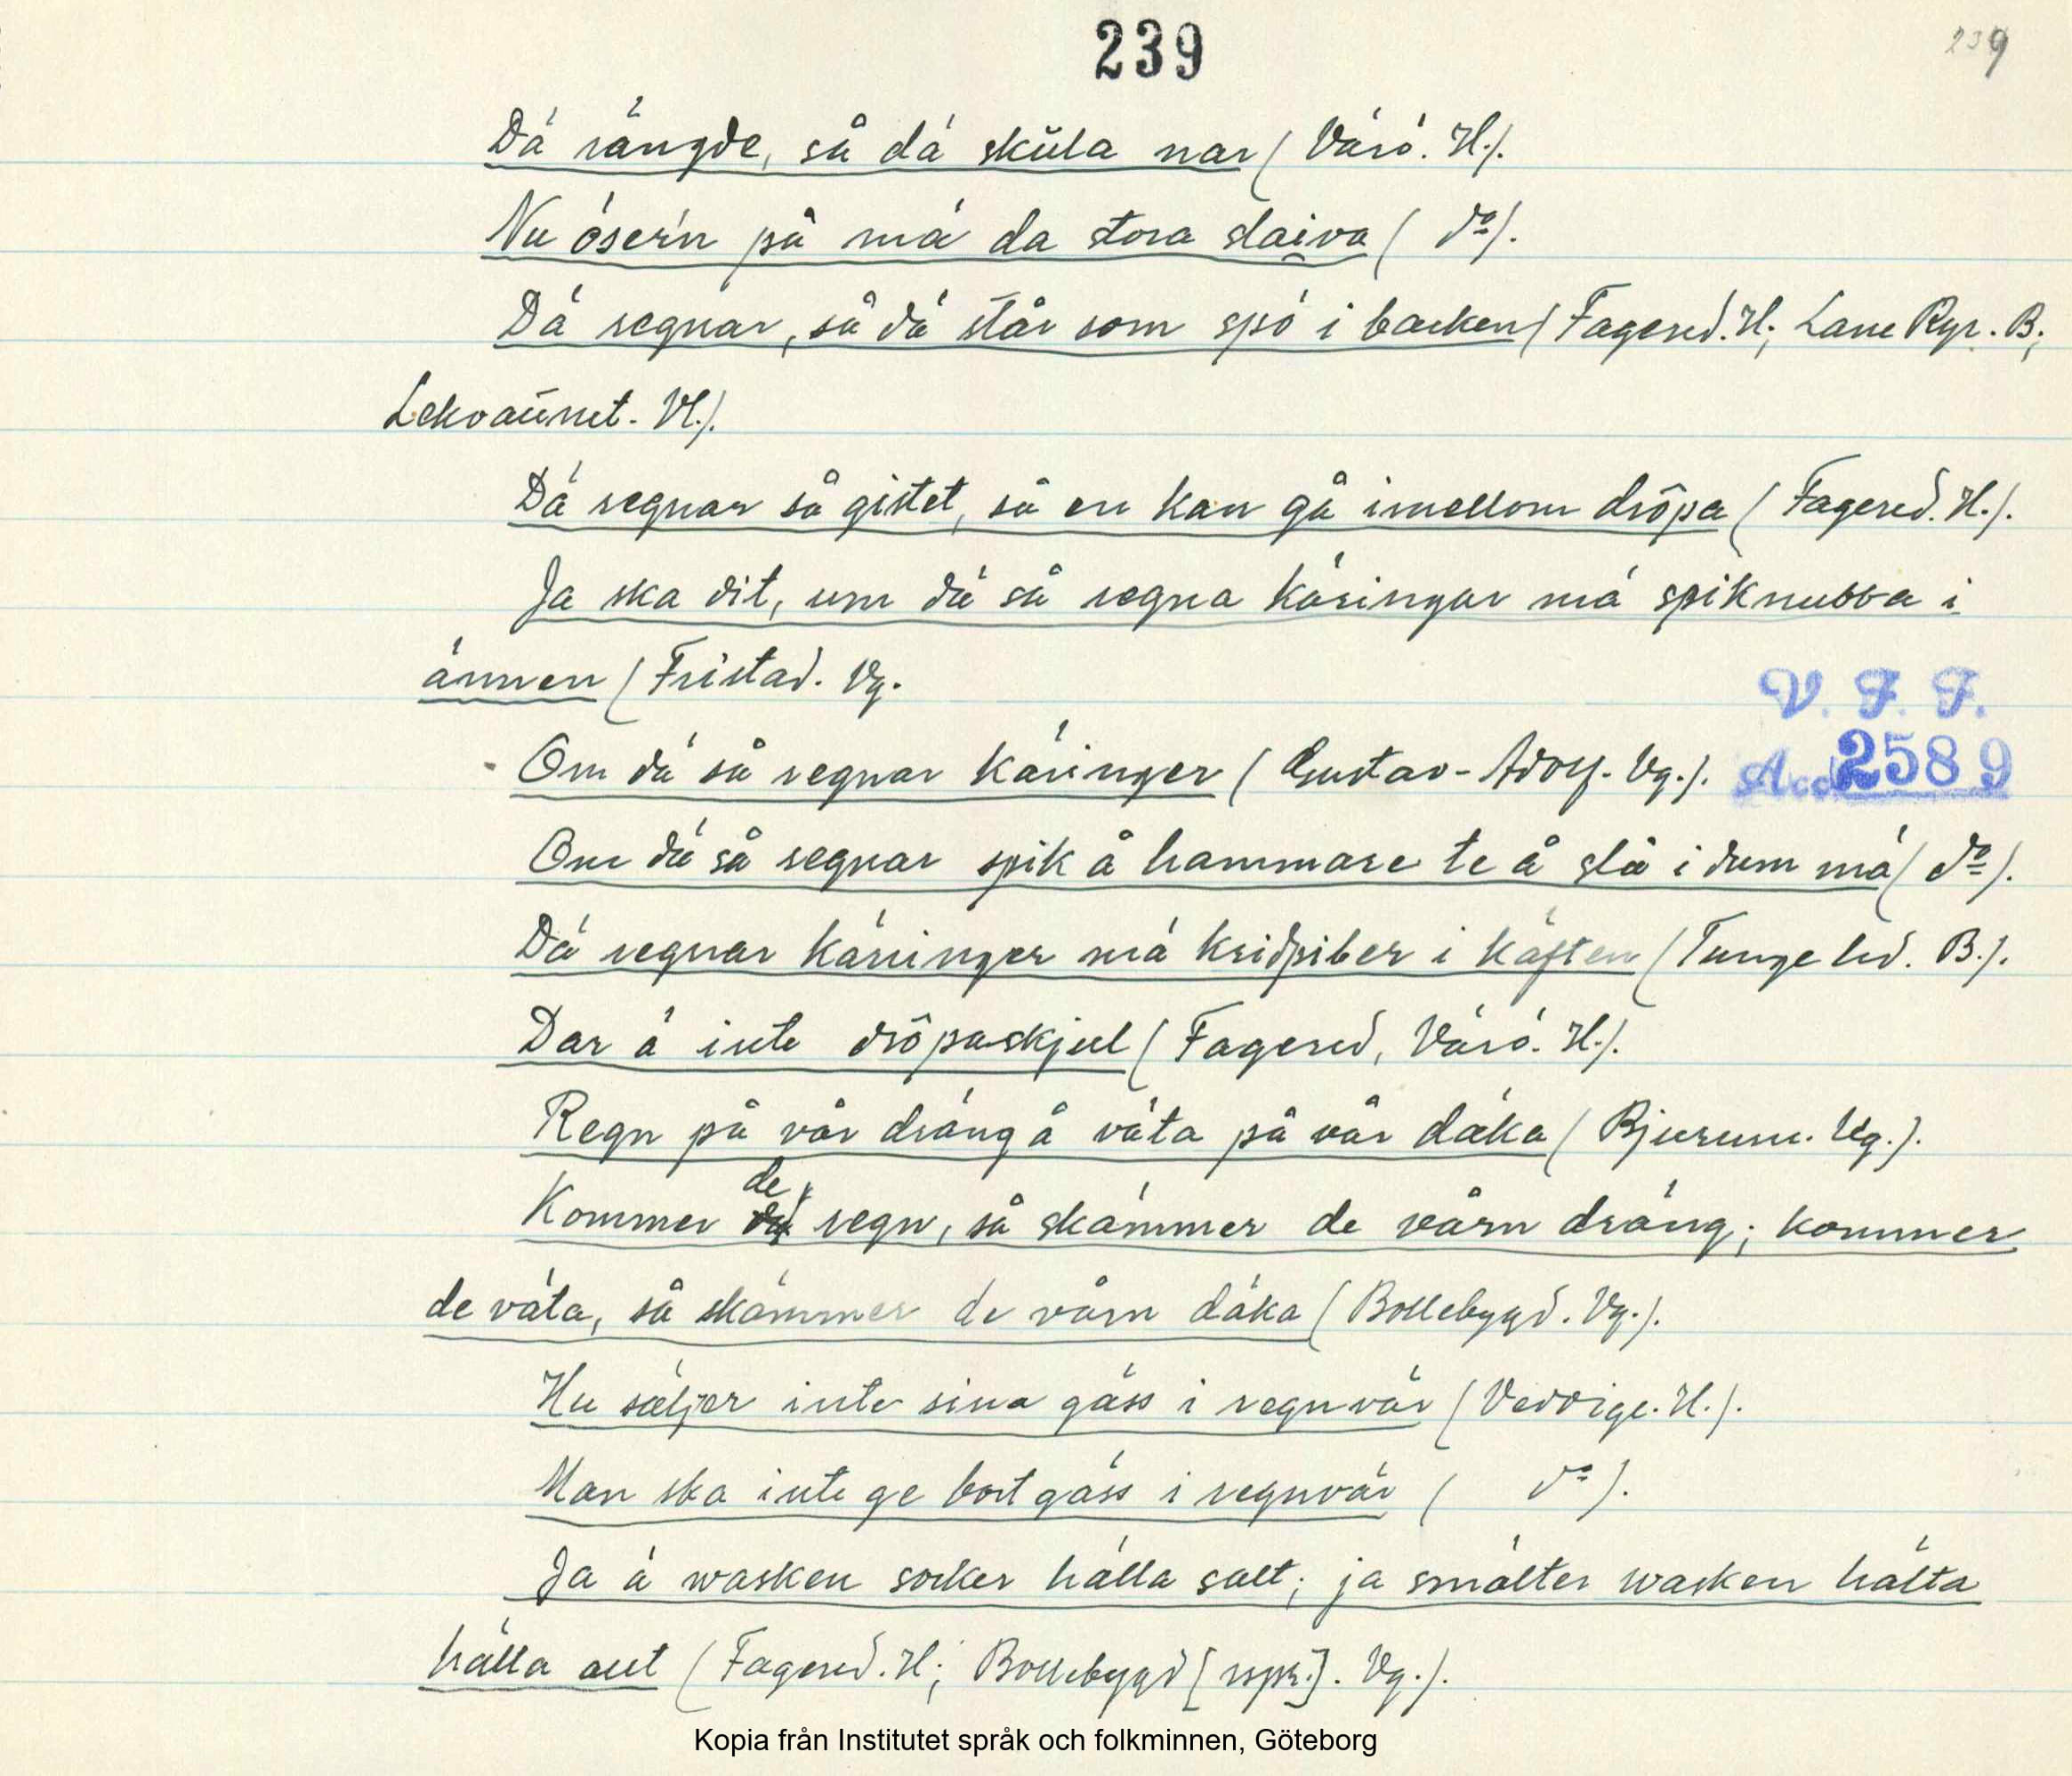 239
239
Dá rángde, så dá skŭla nar (Váró. H.).
Nu óser'n på má da stora slaiva ( do).
Dá regnar, så dá står som spó i backen (Fagered. H; Lane Ryr. B;
Lekvattnet. Vl.).
Dá regnar så gistet, så en kan gå imellom drôpa (Fagered. H.).
Ja ska dit, um dá så regna káringar má spiknubba i
ánnen (Fristad. Vg.
Om dá så regnar káringer (Gustav-Adolf. Vg.).
V. F. F.
Acc 2589
Om dá så regnar spik å hammare te å slå i dem má ( do).
Dá regnar káringer má kridpiber i káften (Tungelsd. B.).
Dar á inte drôpaskjul (Fagered, Váró. H.).
Regn på vår dráng á váta på vår dáka (Bjurum. Vg.).
de
Kommer regn, så skámmer de vårn dráng; kommer
de váta, så skámmer de vårn dáka (Bollebygd. Vg.).
Hu sáljer inte sina gáss i regnvár (Veddige. H.).
Man ska inte ge bort gáss i regnvár ( do).
Ja á wasken socker hálla salt; ja smálter wasken hálta
hálla aut (Fagered. H; Bollebygd [rspr.]. Vg.).
Kopia från Institutet språk och folkminnen, Göteborg